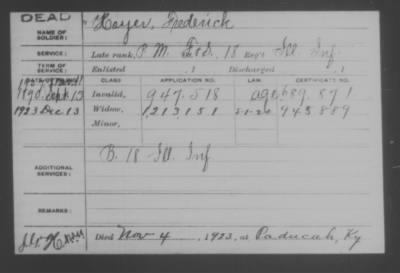 DEAD
NAME OF SOLDIER: Hoyer, Frederick
SERVICE: Late rank, P.M. 18 Reg't Ill Inf.
TERM OF SERVICE: Enlisted , 1 Discharged , 1
CLASS. APPLICATION NO. LAW. CERTIFICATE NO.
Invalid, 947.518 age 689.871
1923 Dec 13 Widow, 1213151 5-1-20 945889
Minor,
ADDITIONAL SERVICES: B. 18 Ill. Inf
REMARKS:
Died Nov 4, 1923, at Paducah, Ky